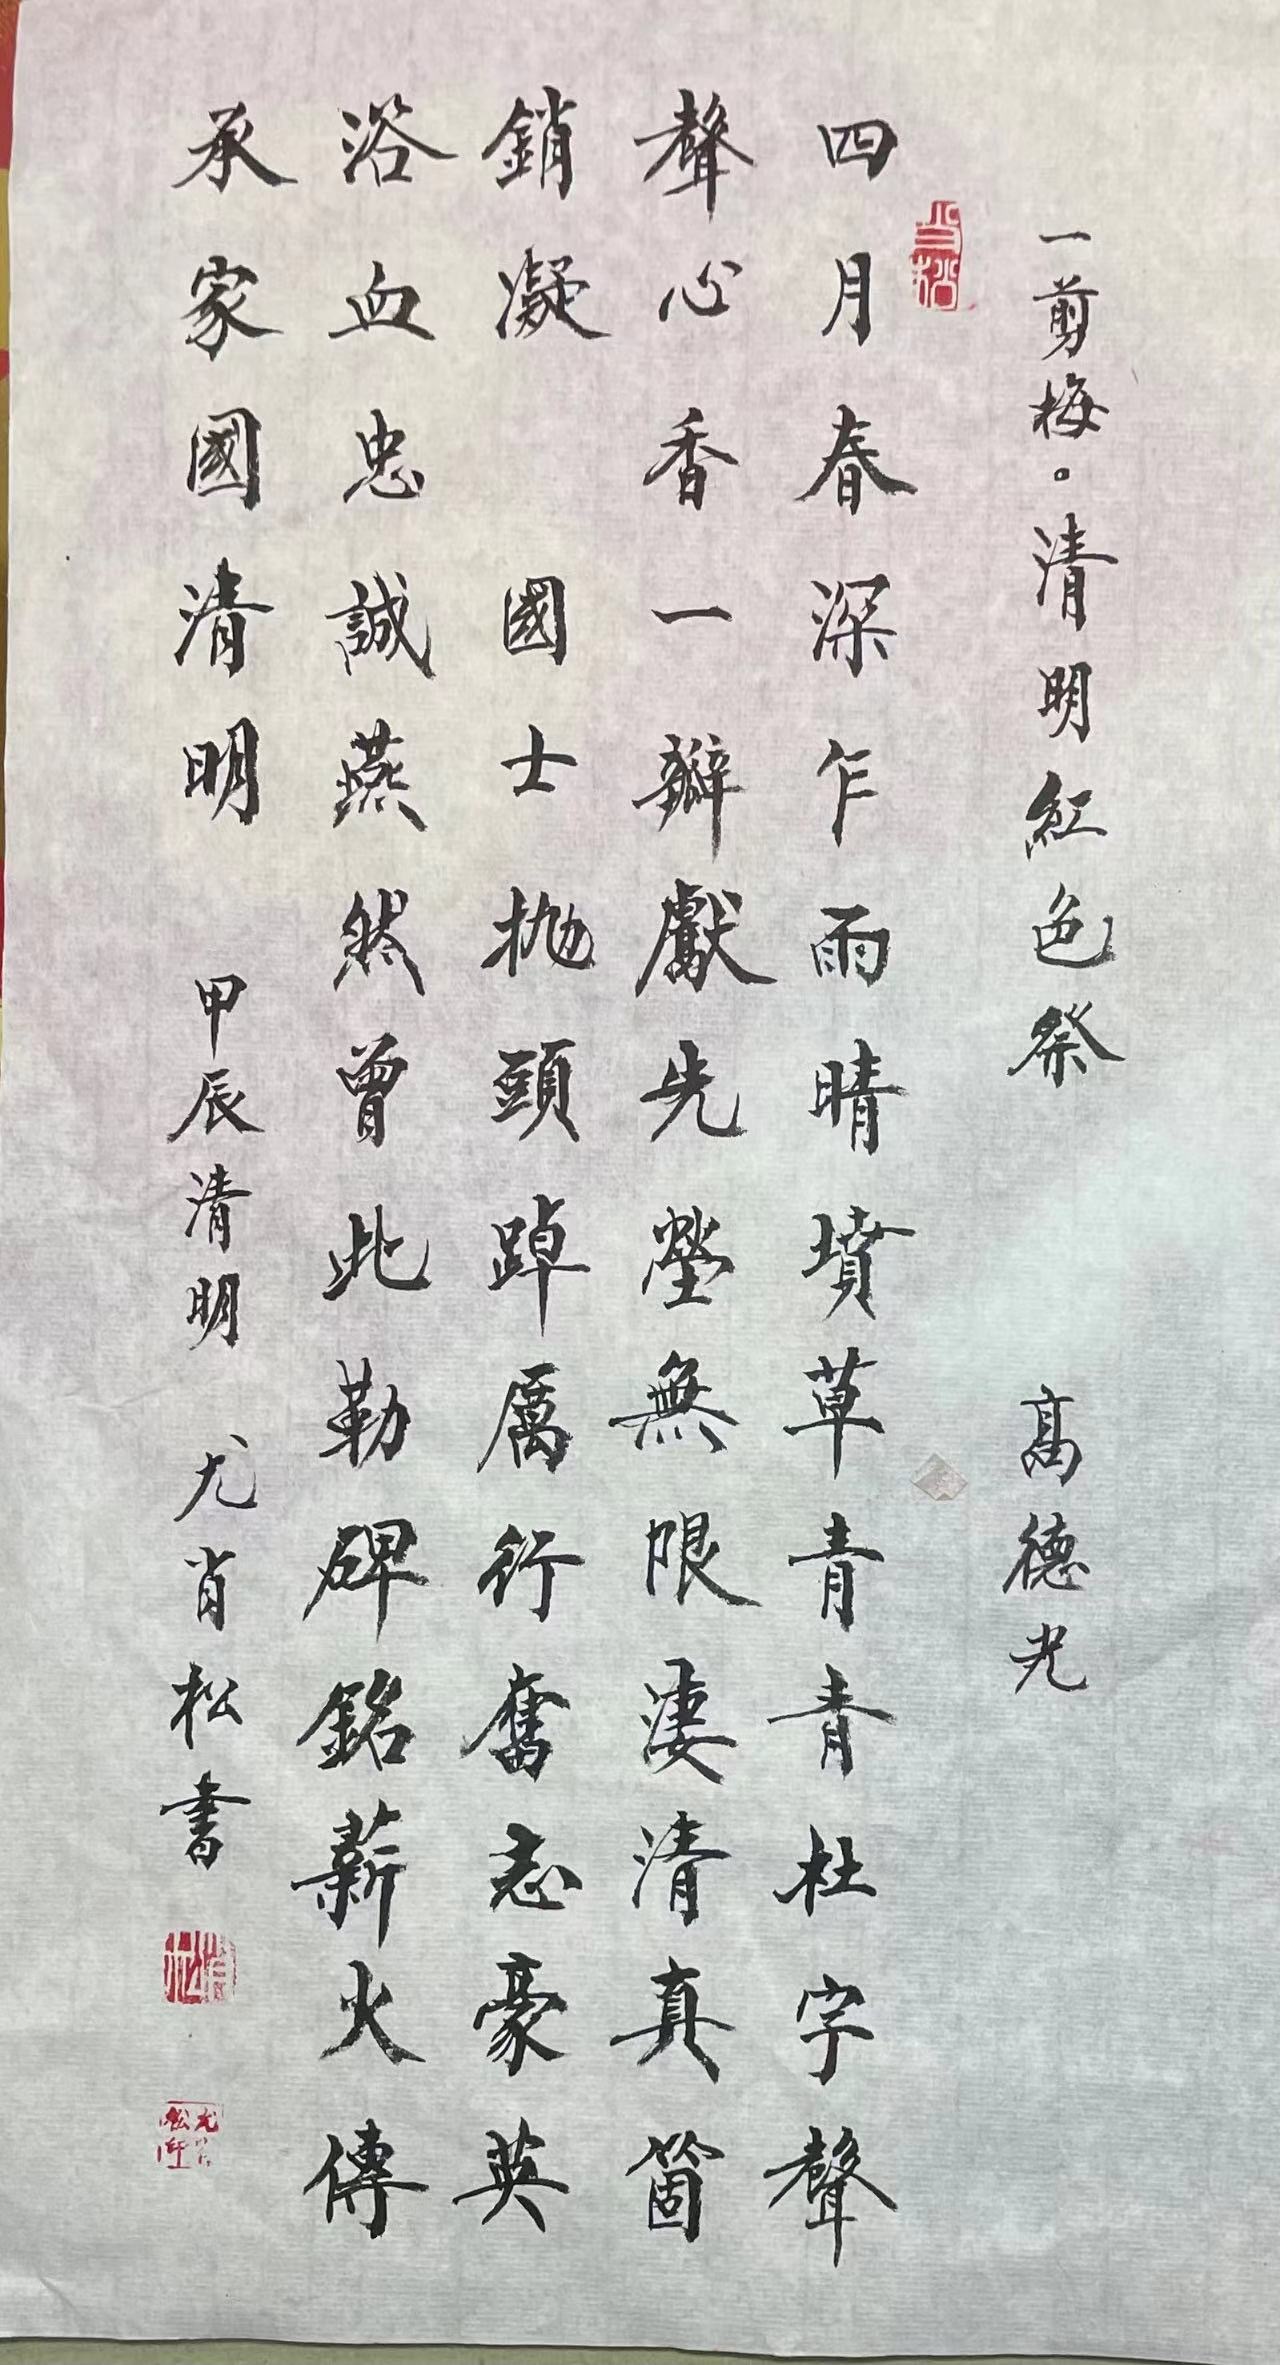 一剪梅。清明紅色祭 高德光
四月春深乍雨晴墳草青青杜宇聲
聲心香一瓣獻先塋無限淒清真箇
銷凝 國士抛頭踔厲行奮志豪英
浴血忠誠燕然曾此勒碑銘薪火傳
承家國清明 甲辰清明 尤肖松書